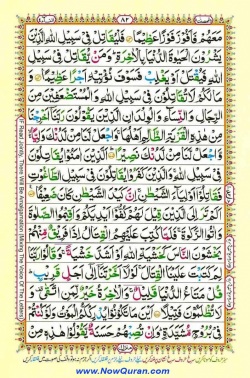 ٨٢
مَعَهُمْ فَاَفُوْزَ فَوْزًا عَظِيْمًا فَلْيُقَاتِلْ فِيْ سَبِيْلِ اللّٰهِ الَّذِيْنَ
يَشْرُوْنَ الْحَيٰوةَ الدُّنْيَا بِالْاٰخِرَةِ وَمَنْ يُّقَاتِلْ فِيْ سَبِيْلِ
اللّٰهِ فَيُقْتَلْ اَوْ يَغْلِبْ فَسَوْفَ نُؤْتِيْهِ اَجْرًا عَظِيْمًا وَ
مَا لَكُمْ لَا تُقَاتِلُوْنَ فِيْ سَبِيْلِ اللّٰهِ وَالْمُسْتَضْعَفِيْنَ مِنَ
الرِّجَالِ وَالنِّسَآءِ وَالْوِلْدَانِ الَّذِيْنَ يَقُوْلُوْنَ رَبَّنَآ اَخْرِجْنَا
مِنْ هٰذِهِ الْقَرْيَةِ الظَّالِمِ اَهْلُهَا وَاجْعَلْ لَّنَا مِنْ لَّدُنْكَ وَلِيًّا
وَّاجْعَلْ لَّنَا مِنْ لَّدُنْكَ نَصِيْرًا اَلَّذِيْنَ اٰمَنُوْا يُقَاتِلُوْنَ
فِيْ سَبِيْلِ اللّٰهِ وَالَّذِيْنَ كَفَرُوْا يُقَاتِلُوْنَ فِيْ سَبِيْلِ الطَّاغُوْتِ
فَقَاتِلُوْٓا اَوْلِيَآءَ الشَّيْطٰنِ اِنَّ كَيْدَ الشَّيْطٰنِ كَانَ ضَعِيْفًا
اَلَمْ تَرَ اِلَى الَّذِيْنَ قِيْلَ لَهُمْ كُفُّوْٓا اَيْدِيَكُمْ وَاَقِيْمُوا الصَّلٰوةَ
وَاٰتُوا الزَّكٰوةَ فَلَمَّا كُتِبَ عَلَيْهِمُ الْقِتَالُ اِذَا فَرِيْقٌ مِّنْهُمْ
يَخْشَوْنَ النَّاسَ كَخَشْيَةِ اللّٰهِ اَوْ اَشَدَّ خَشْيَةً وَقَالُوْا رَبَّنَا
لِمَ كَتَبْتَ عَلَيْنَا الْقِتَالَ لَوْلَآ اَخَّرْتَنَآ اِلٰٓى اَجَلٍ قَرِيْبٍ
قُلْ مَتَاعُ الدُّنْيَا قَلِيْلٌ وَالْاٰخِرَةُ خَيْرٌ لِّمَنِ اتَّقٰى وَ
لَا تُظْلَمُوْنَ فَتِيْلًا اَيْنَ مَا تَكُوْنُوْا يُدْرِكْكُّمُ الْمَوْتُ وَلَوْ كُنْتُمْ
فِيْ بُرُوْجٍ مُّشَيَّدَةٍ وَاِنْ تُصِبْهُمْ حَسَنَةٌ يَّقُوْلُوْا هٰذِهٖ مِنْ
www.NowQuran.com